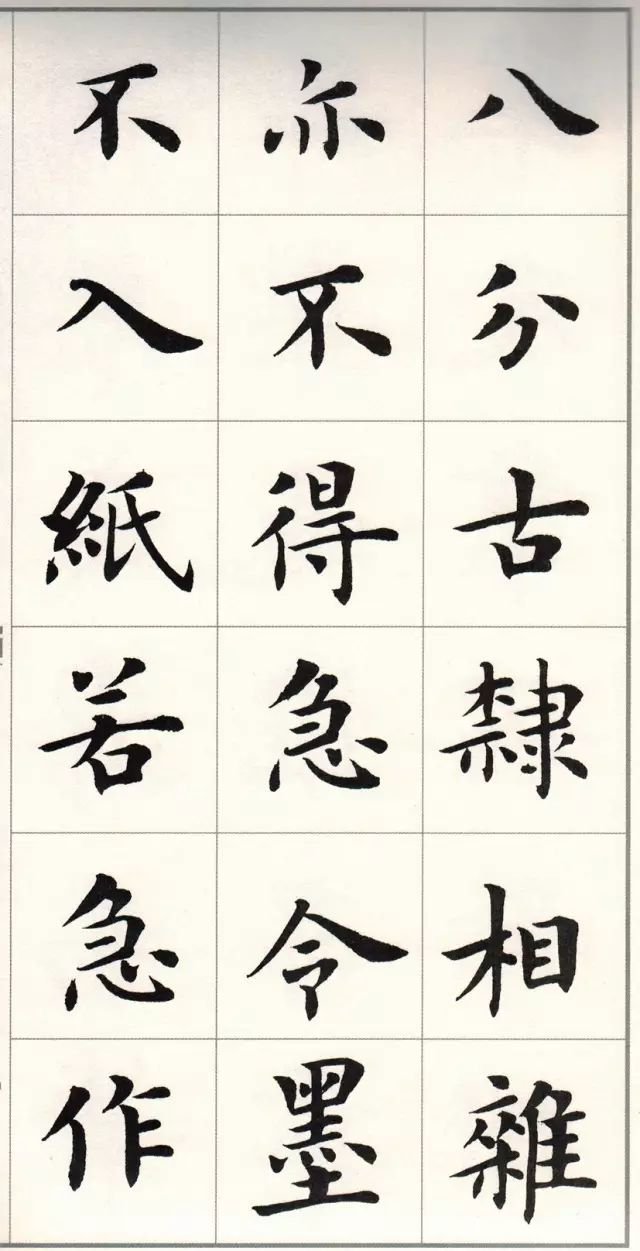 八分古隸相雜
亦不得急令墨
不入紙若急作